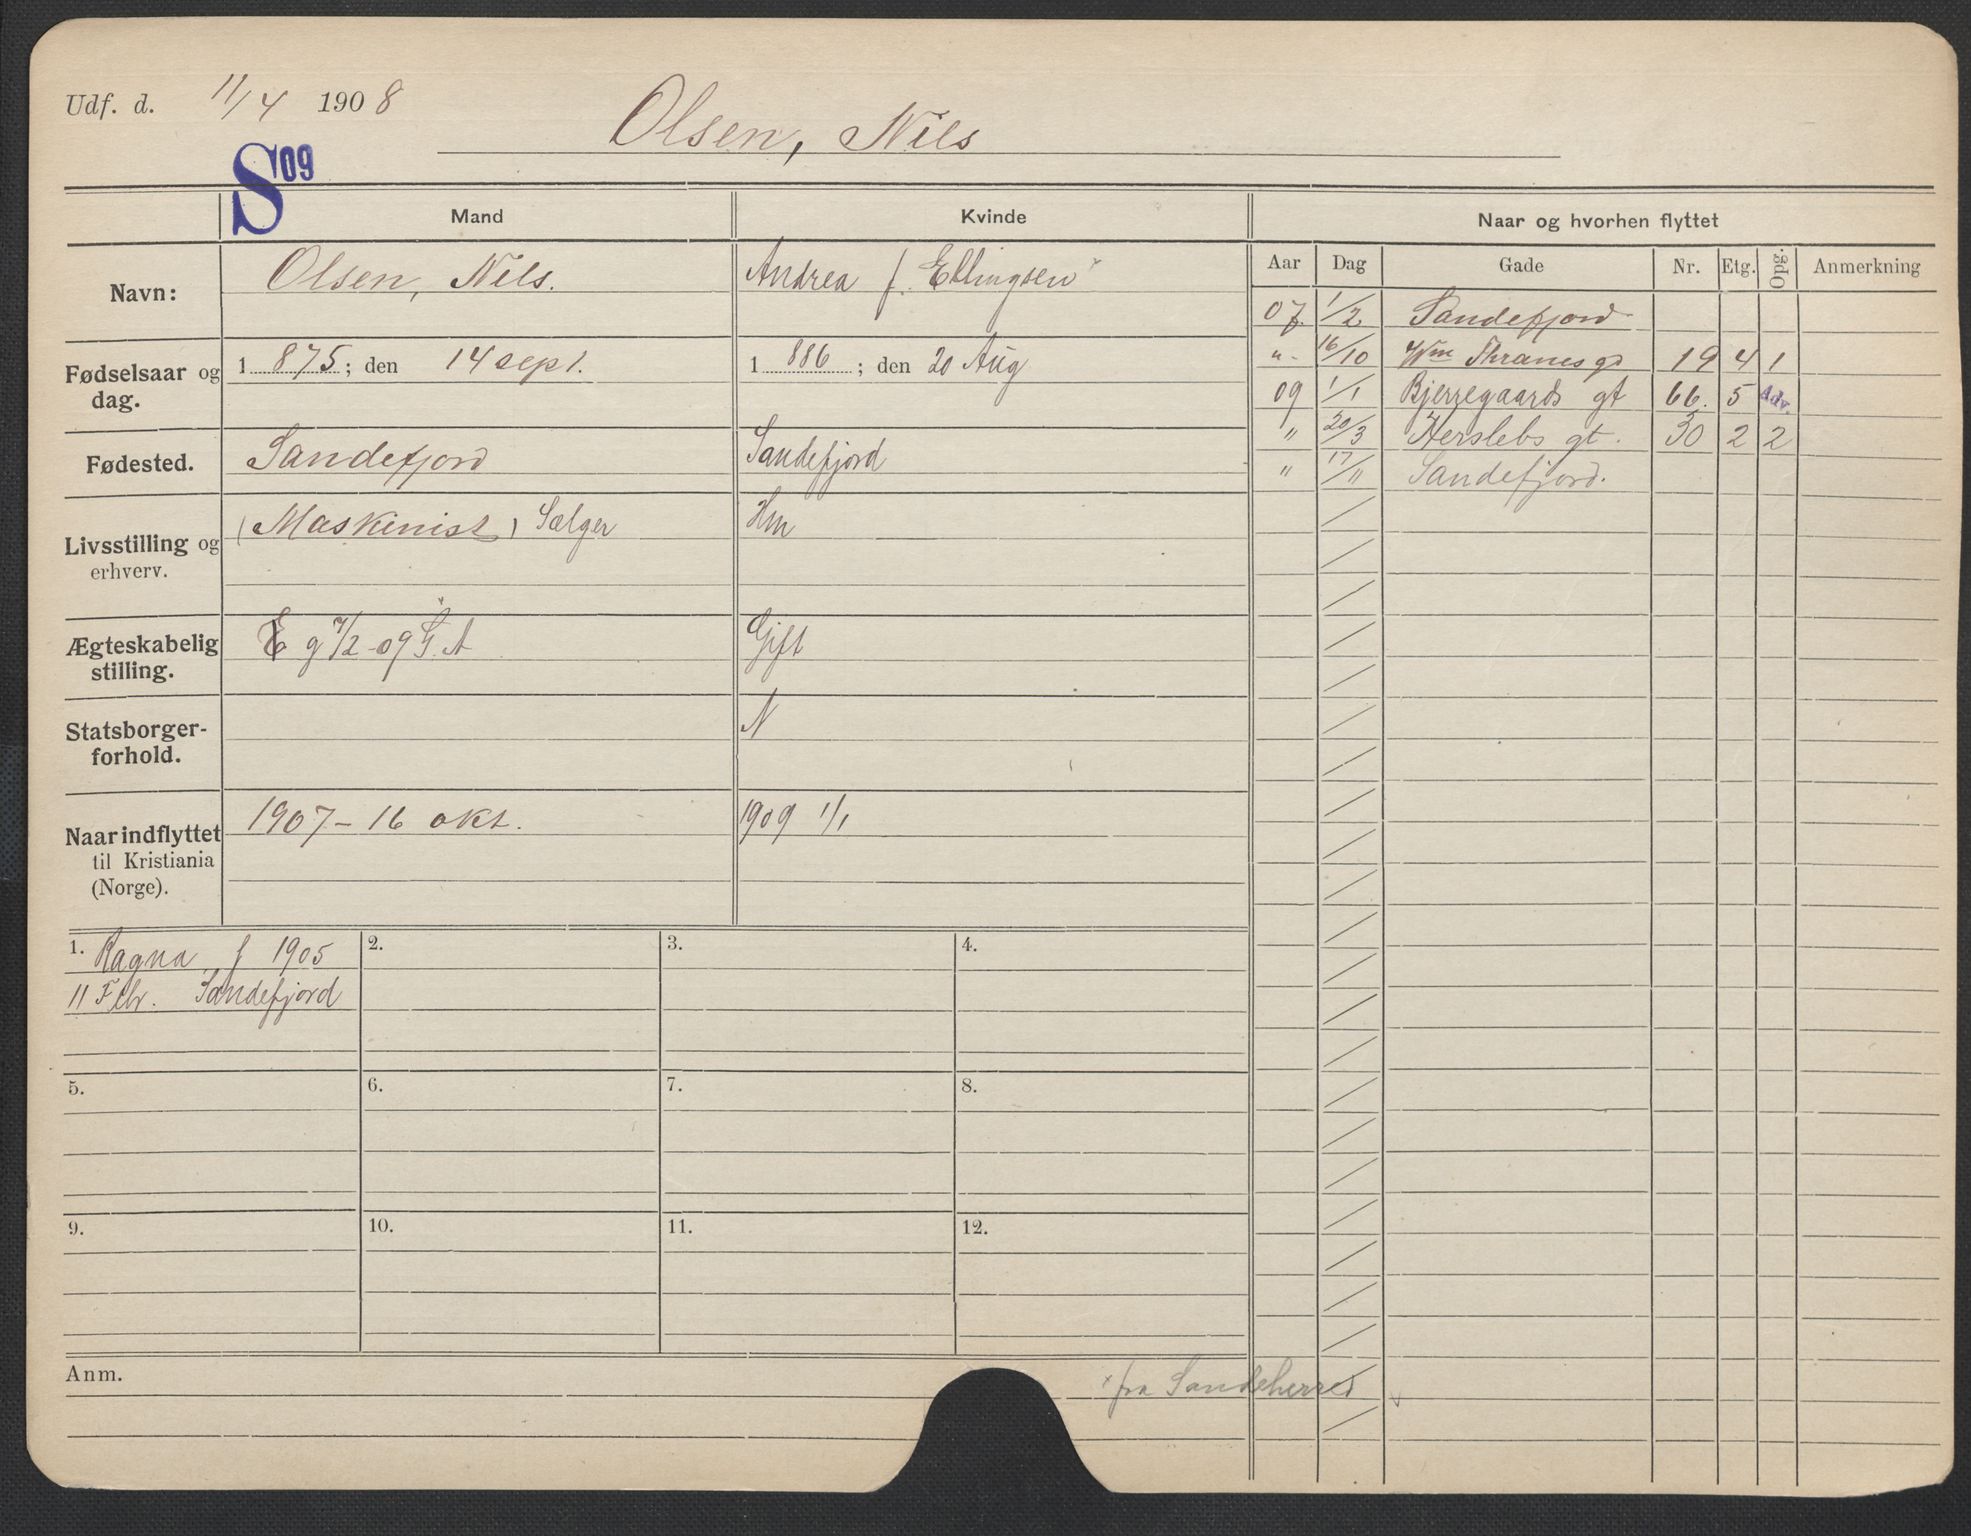 Udf. d. 11/4 1908
Olsen, Nils
S 09
Mand
Kvinde
Naar og hvorhen flyttet
Navn:
Olsen, Nils.
Andrea f. Ellingsen x
Fødselsaar og dag.
1 875; den 14 sept.
1 886; den 20 Aug
Fødested.
Sandefjord
Sandefjord
Livsstilling og erhverv.
(Maskinist) Sælger
Hm
Ægteskabelig stilling.
E g 7/2-09 F. A
Gift
Statsborger-
forhold.
N
Naar indflyttet
til Kristiania
(Norge).
1907 - 16 okt.
1909 1/1
Aar Dag Gade Nr. Etg. Opg. Anmerkning
07. 1/2 Sandefjord
"- 16/10 Wm Thranes g. 19 4 1
09 1/1 Bjerregaards gt 66. 5 Adv.
" 20/3 Herslebs gt. 30 2 2
" 17/11 Sandefjord.
1. Ragna f 1905
11 Febr. Sandefjord
2.
3.
4.
5.
6.
7.
8.
9.
10.
11.
12.
Anm.
x fra Sandeherred